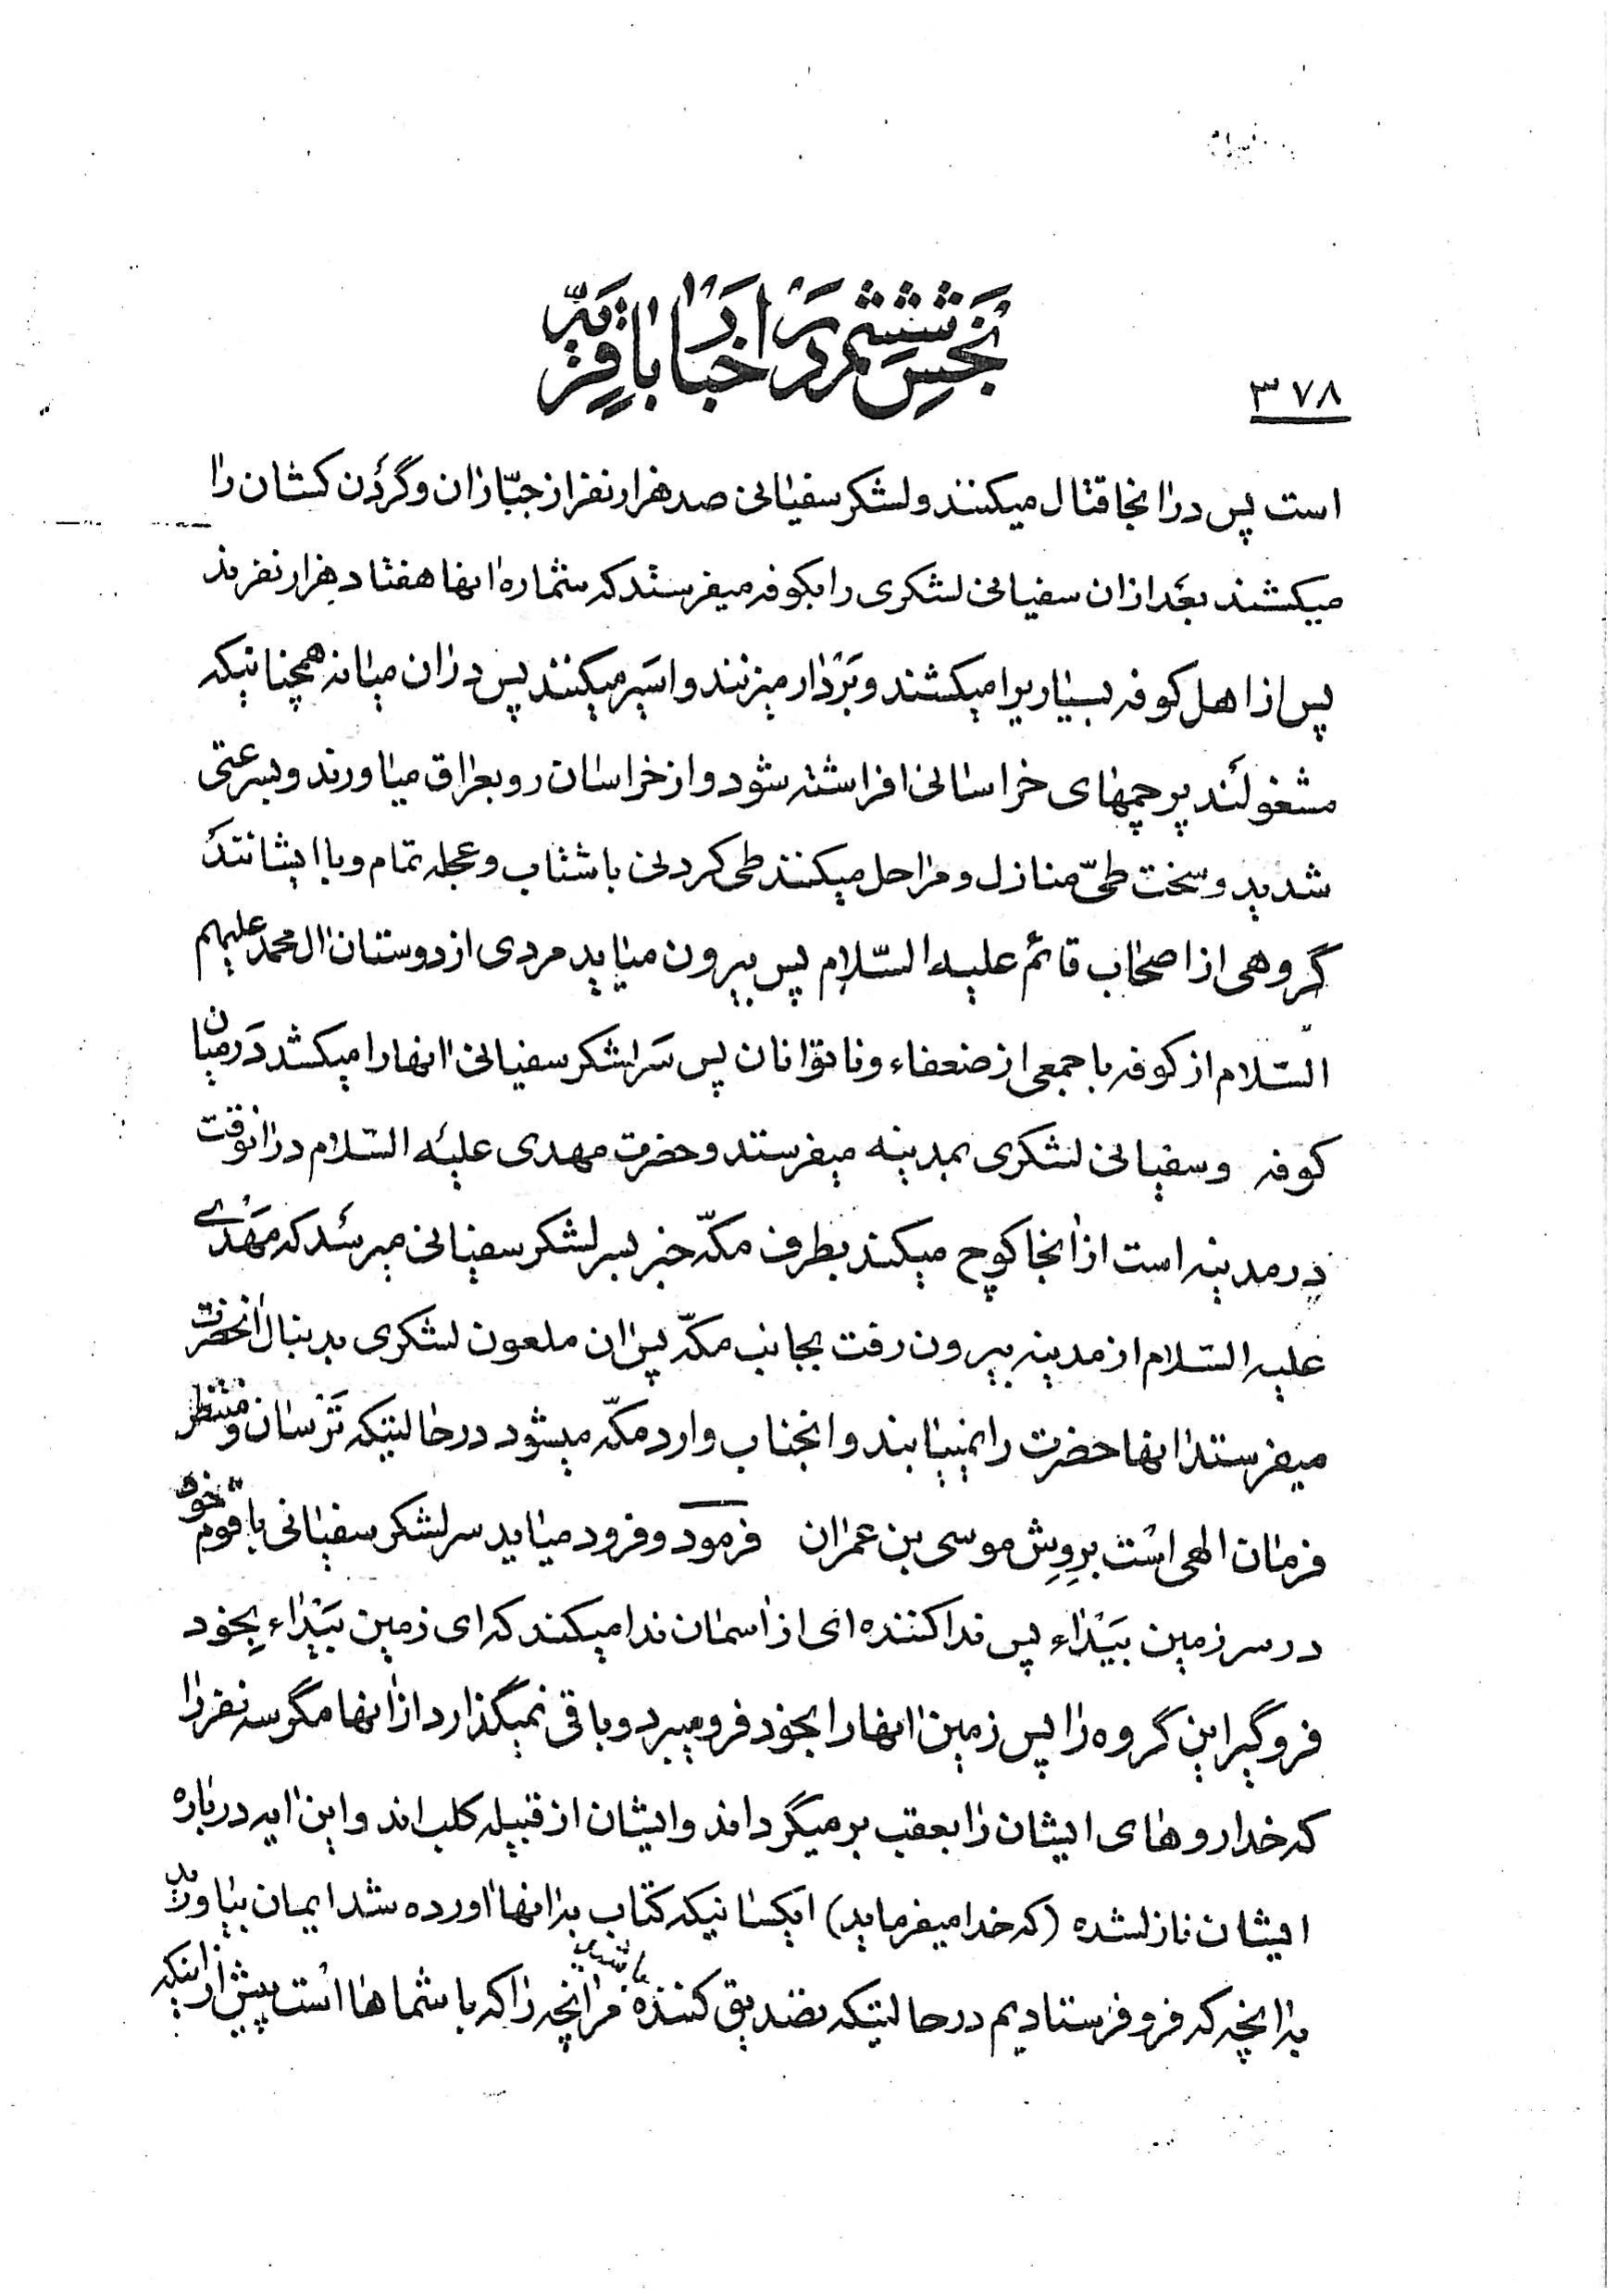 بخش ششم در اخبار باقریه
۳۷۸
است پس در انجا قتال میکنند و لشکر سفیانی صد هزار نفر از جبّاران و گردن کشان را
میکشند بعد از ان سفیانی لشکری را بکوفه میفرستد که شماره انها هفتاد هزار نفرند
پس از اهل کوفه بسیاریرا میکشند و بردار میزنند و اسیر میکنند پس در ان میانه همچنانیکه
مشغولند پرچمهای خراسانی افراشته شود و از خراسان رو بعراق میاورند و بسرعتی
شدید و سخت طیّ منازل و مراحل میکنند طی کردنی با شتاب و عجله تمام و با ایشانند
گروهی از اصحاب قائم علیه السّلام پس بیرون میاید مردی از دوستان ال محمد علیهم
السّلام از کوفه با جمعی از ضعفاء و ناتوانان پس سرلشکر سفیانی انها را میکشد در میان
کوفه و سفیانی لشکری بمدینه میفرستد و حضرت مهدی علیه السّلام در انوقت
در مدینه است از انجا کوچ میکند بطرف مکّه خبر بسرلشکر سفیانی میرسد که مهدی
علیه السّلام از مدینه بیرون رفت بجانب مکّه پس ان ملعون لشکری بدنبال انحضرت
میفرستد انها حضرت را نمییابند و انجناب وارد مکّه میشود در حالتیکه ترسان و منتظر
فرمان الهی است بروِش موسی بن عمران فرمود و فرود میاید سرلشکر سفیانی با قوم خود
در سر زمین بیداء پس ندا کننده ای از اسمان ندا میکند که ای زمین بیداء بخود
فروگیر این گروه را پس زمین انها را بخود فرو میبرد و باقی نمیگذارد از انها مگر سه نفر را
که خدا روهای ایشان را بعقب برمیگرداند و ایشان از قبیله کلب اند و این ایه درباره
ایشان نازلشده (که خدا میفرماید) ایکسانیکه کتاب بر انها اورده شد ایمان بیاورید
بر انچه که فرو فرستادیم در حالتیکه تصدیق کننده باشید مر انچه را که با شماها است پیش از اینکه